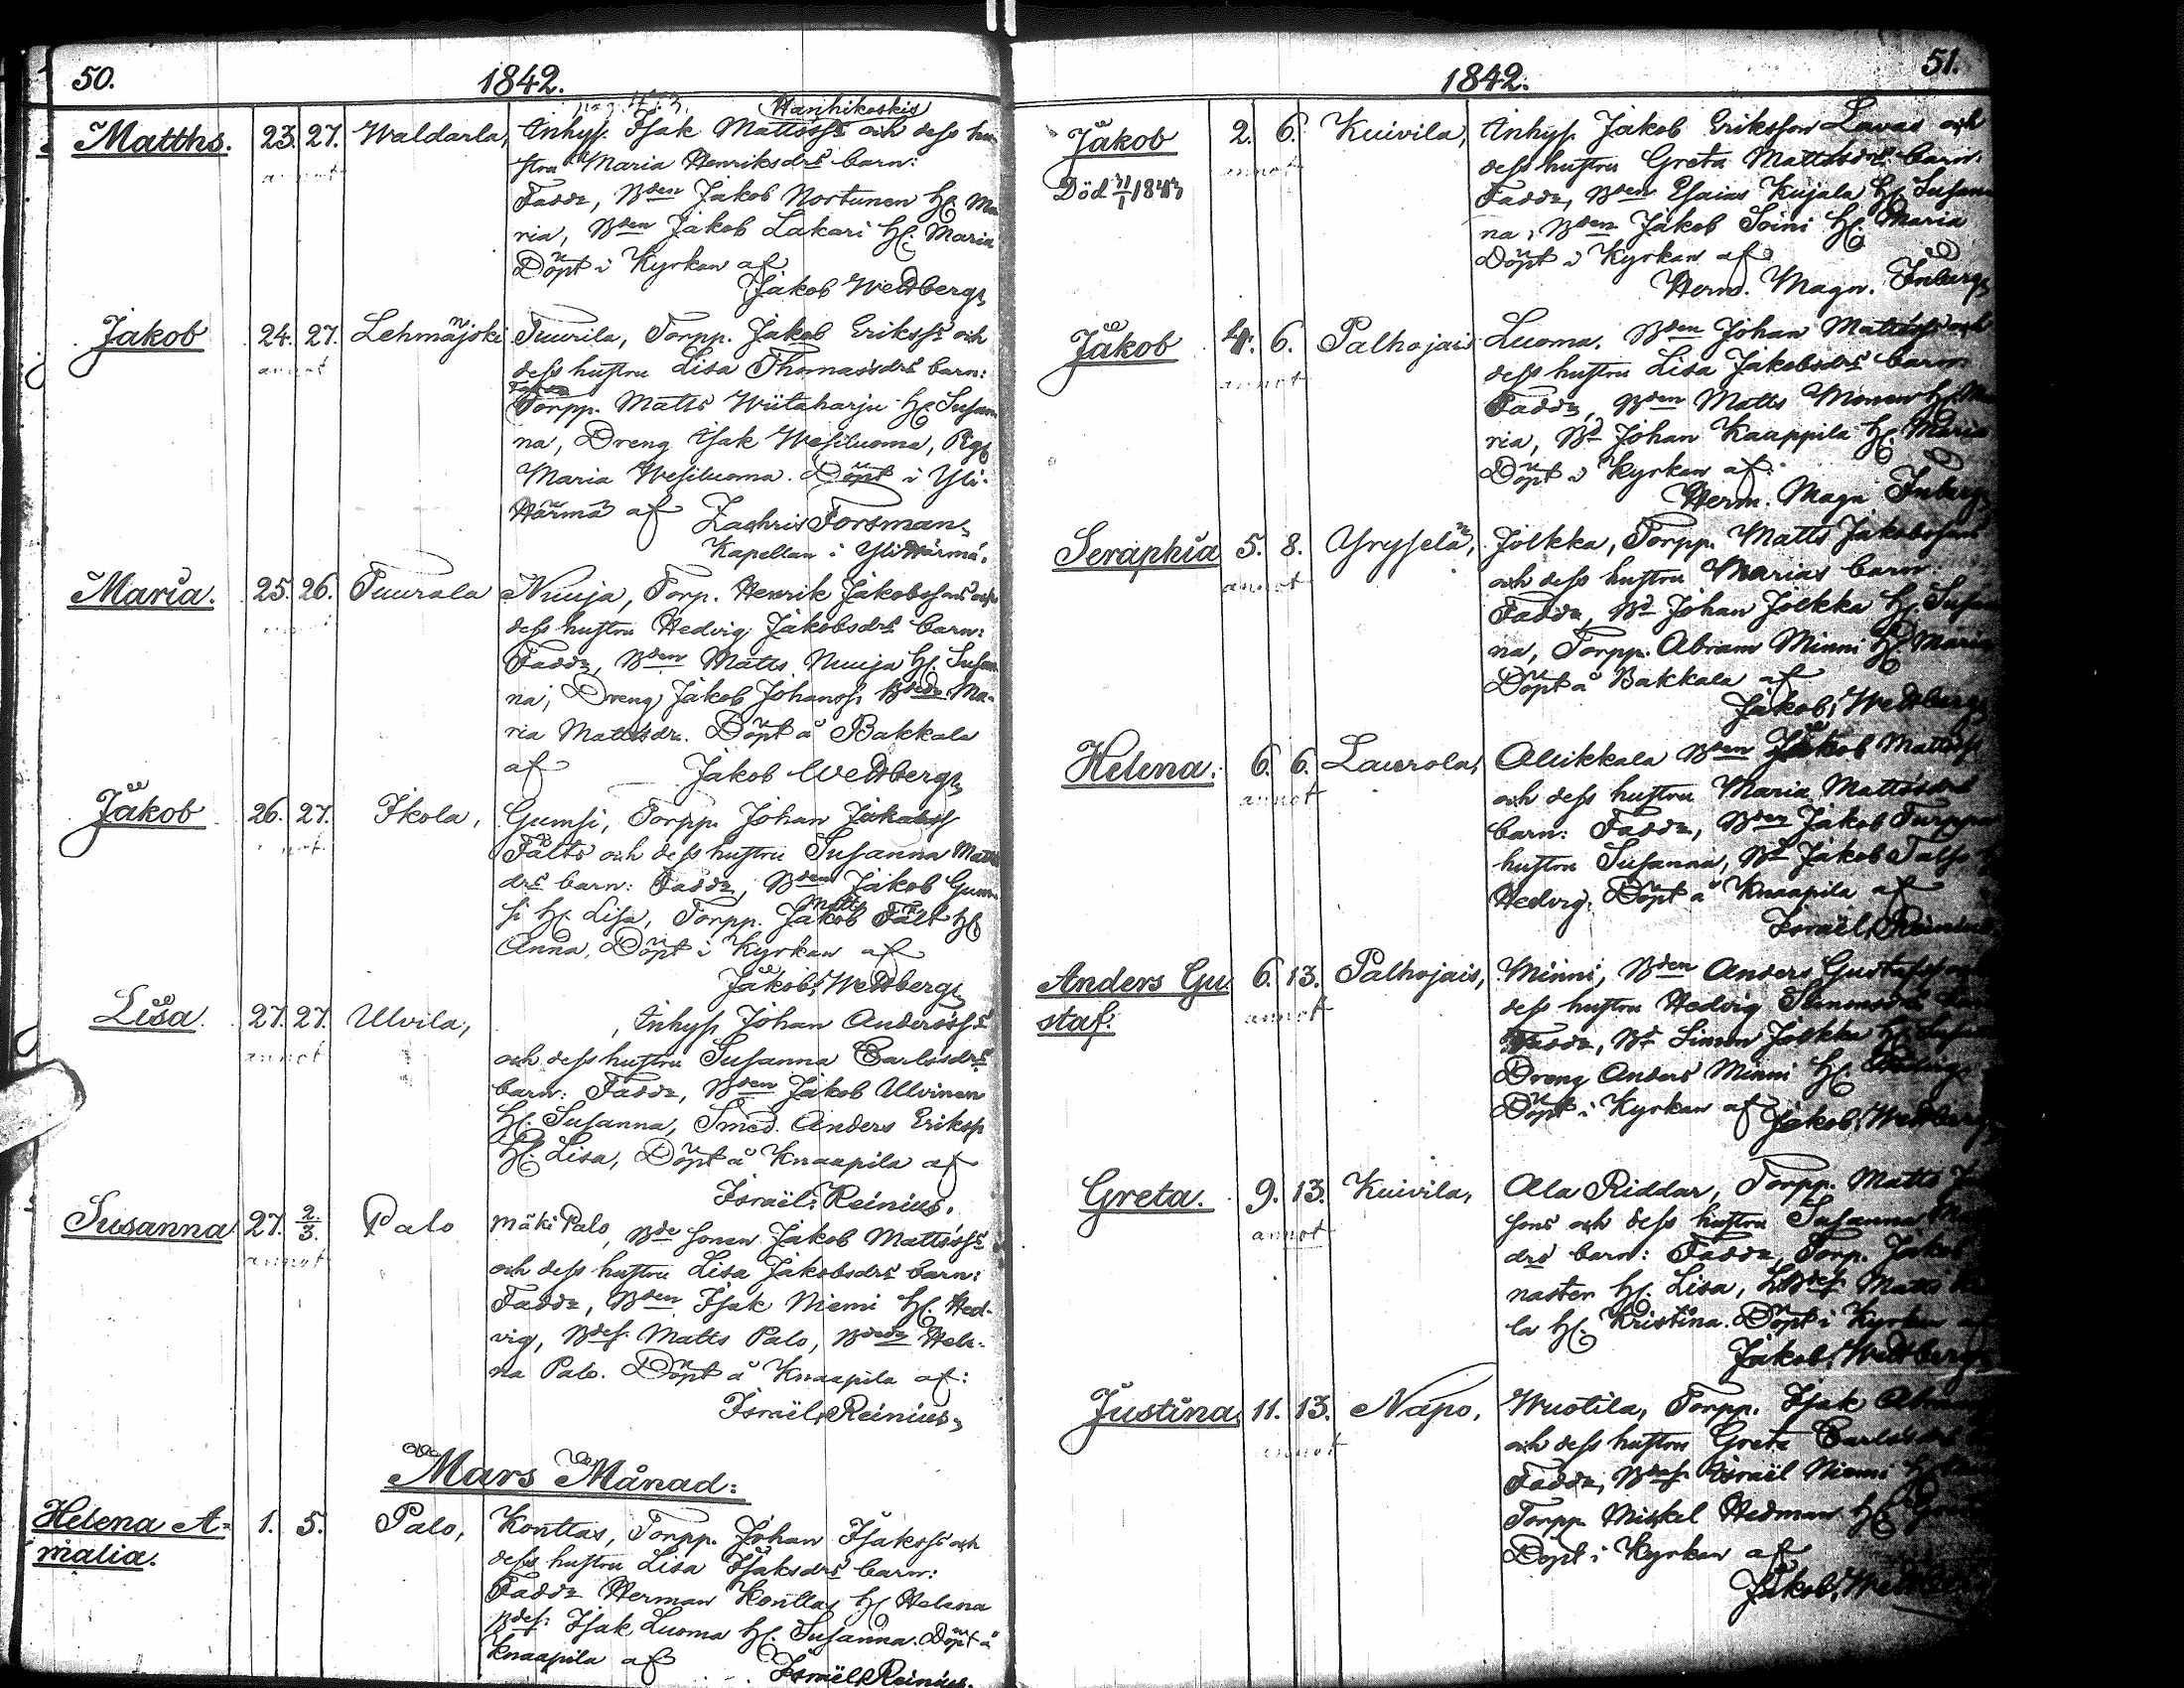 50.
1842.
Hanhikoskis
Matths. 23. 27. Waldarla, Inhys. Isak Mattsss och dess hu-
annot
stru Maria Henriksdrs barn:
Fadd:, Bden Jakob Nortunen H. Ma
ria, Bden Jakob Lakari H. Maria
Döpt i Kyrkan af
Jakob Wedberg
Jakob 24. 27. Lehmäjoki Tuurila, Torpp. Jakob Erikss och
annot
dess hustru Lisa Thomasdrs barn:
Fadd:
Torpp. Matts Wiitaharju H. Susan
na, Dreng Isak Wesiluoma, Pig
Maria Wesiluoma. Döpt i Yli-
Härmä af Zachris Forsman
Kapellan i Yli Härmä.
Maria. 25. 26. Tuurala Nuuja, Torp. Henrik Jakobssons och
annot
dess hustru Hedvig Jakobsdrs barn:
Fadd:, Bden Matts Nuuja H. Susan
na, Dreng Jakob Johanss Bdedr Ma-
ria Mattsdr. Döpt å Bakkala
af Jakob Wedberg
Jakob 26. 27. Ikola, Gumsi, Torpp. Johan Jakobss
annot
Fälts och dess hustru Susanna Matts
drs barn: Fadd:, Bden Jakob Gum-
Matts
si H. Lisa, Torpp. Jakob Fält H.
Anna, Döpt i Kyrkan af
Jakob Wedberg
Lisa. 27. 27. Ulvila, , Inhys Johan Anderss
annot
och dess hustru Susanna Carlsdrs
barn: Fadd:, Bden Jakob Ulvinen
H. Susanna, Smed. Anders Eriks
H. Lisa, Döpt å Knaapila af
Israël Reinius.
Susanna 27. 2/3. Palo Mäki Palo, Bde sonen Jakob Mattsss
annot
och dess hustru Lisa Jakobsdrs barn:
Fadd:, Bden Isak Niemi H. Hed-
vig, Bdes. Matts Palo, Bdedr Hele-
na Palo. Döpt å Knaapila af:
Israël Reinius
Mars Månad:
Helena A- 1. 5. Palo, Kontlas, Torpp. Johan Isakss och
malia. dess hustru Lisa Isaksdrs barn:
Fadd: Herman Kontlas H. Helena
Bdes: Isak Luoma H. Susanna. Döpt å
Knaapila af
Israël Reinius.
1842.
51.
Jakob 2. 6. Kuivila, Inhys. Jakob Eriksson Lavas och
annot
dess hustru Greta Mattsdrs barn:
Död 31/1 1843
Fadd:, Bden Esaias Kujala H. Susan
na, Bden Jakob Soini H. Maria
Döpt i Kyrkan af
Herm. Magn. Inberg
Jakob 4. 6. Palhojais Luoma. Bden Johan Mattss och
annot
dess hustru Lisa Jakobsdrs barn:
Fadd:, Bden Matts Mönen H. Ma
ria, Bd Johan Kaappila H. Maria
Döpt i Kyrkan af:
Herm. Magn Inberg
Seraphia 5. 8. Yrysselä, Jolkka, Torpp. Matts Jakobssons
annot
och dess hustru Marias barn:
Fadd:, Bd Johan Jolkka H. Susan
na, Torpp. Abram Minni H. Maria
Döpt å Bakkala af
Jakob Wedberg
Helena. 6. 6. Laurola, Alikkala Bden Jakob Mattss
annot
och dess hustru Maria Mattsdrs
barn: Fadd:, Bden Jakob Turppa
hustru Susanna, Bd Jakob Talso
Hedvig. Döpt å Knaapila af
Israël Reinius
Anders Gu 6. 13. Palhojais, Minni, Bden Anders Gustafss och
staf. annot
dess hustru Hedvig Simonsdrs
Fadd:, Bd Simon Jolkka H. Susan
Dreng Anders Minni H. Hedvig
Döpt i Kyrkan af Jakob Wedberg
Greta. 9. 13. Kuivila, Ala Riddar, Torpp. Matts
annot
sons och dess hustru Susanna
drs barn: Fadd:, Torp. Jakob
nasten H. Lisa, Bdes Matts
la H. Kristina. Döpt i Kyrkan af
Jakob Wedberg
Justina 11. 13. Napo, Wuotila, Torpp. Isak
annot
och dess hustru Greta Carlsdrs
Fadd:, Bdes Israël Niemi H.
Torpp. Mickel Hedman H. Greta
Döpt i Kyrkan af
Jakob Wedberg